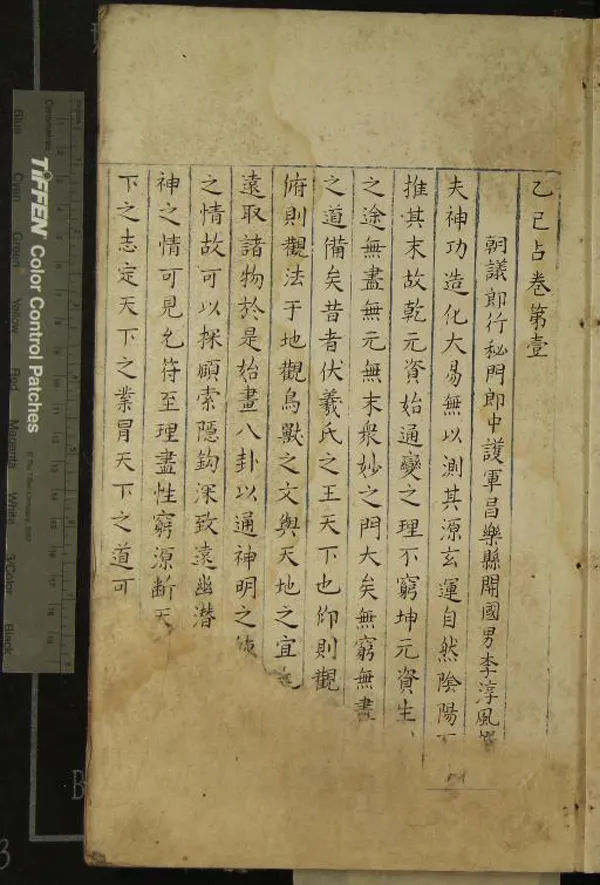 乙巳占卷第壹
朝議郎行秘閤郎中護軍昌樂縣開國男李淳風
夫神功造化大易無以測其源玄運自然陰陽
推其末故乾元資始通變之理不窮坤元資生
之途無盡無元無末衆妙之門大矣無窮無盡
之道備矣昔者伏羲氏之王天下也仰則觀
俯則觀法于地觀鳥獸之文與天地之宜
遠取諸物於是始畫八卦以通神明之
之情故可以探賾索隱鈎深致遠幽潜
神之情可見允符至理盡性窮源斷天
下之志定天下之業冒天下之道可
TIFFEN Color Control Patches
Blue
Cyan
Green
Yellow
Red
Magenta
White
3/Color
Black
B
3